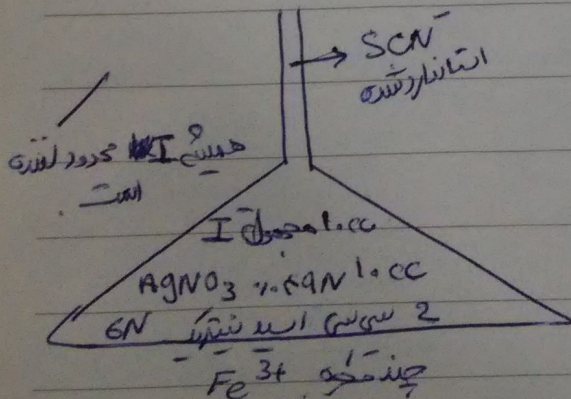 SCN⁻
استاندارد شده
همیشه I محدود کننده
است.
۱۰cc مجهول I
۱۰cc ۰٫۰۴۹N AgNO3
2 سی سی اسید نیتریک 6N
چند قطره Fe3+